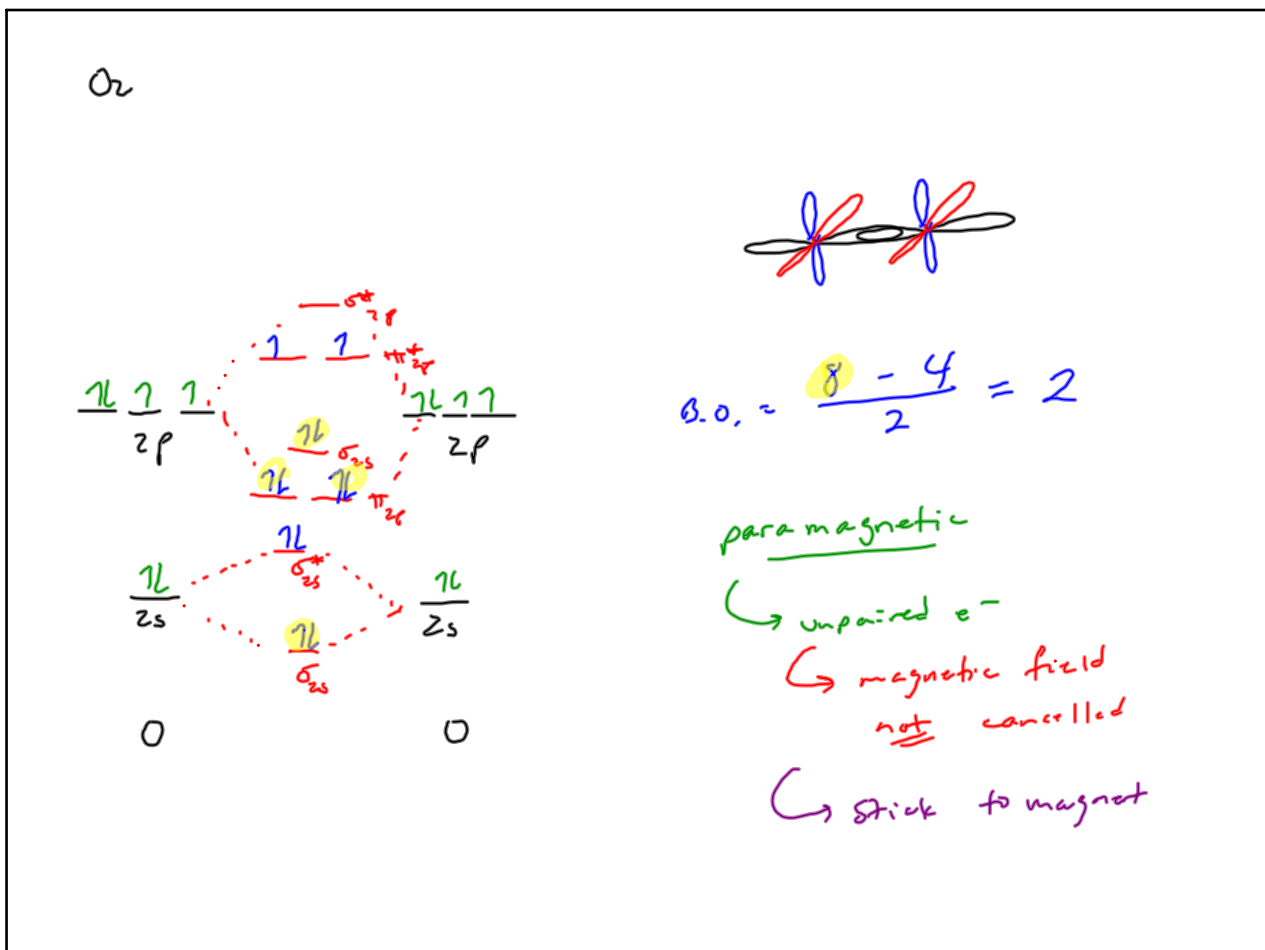 O₂
σ*2p
1 1 π*2p
1l 1 1
1l 1 1
2p
2p
1l σ2s
1l 1l π2p
1l
σ*2s
1l
2s
1l
2s
1l
σ2s
O O
B.O. = 8 - 4 / 2 = 2
paramagnetic
unpaired e⁻
magnetic field
not cancelled
stick to magnet